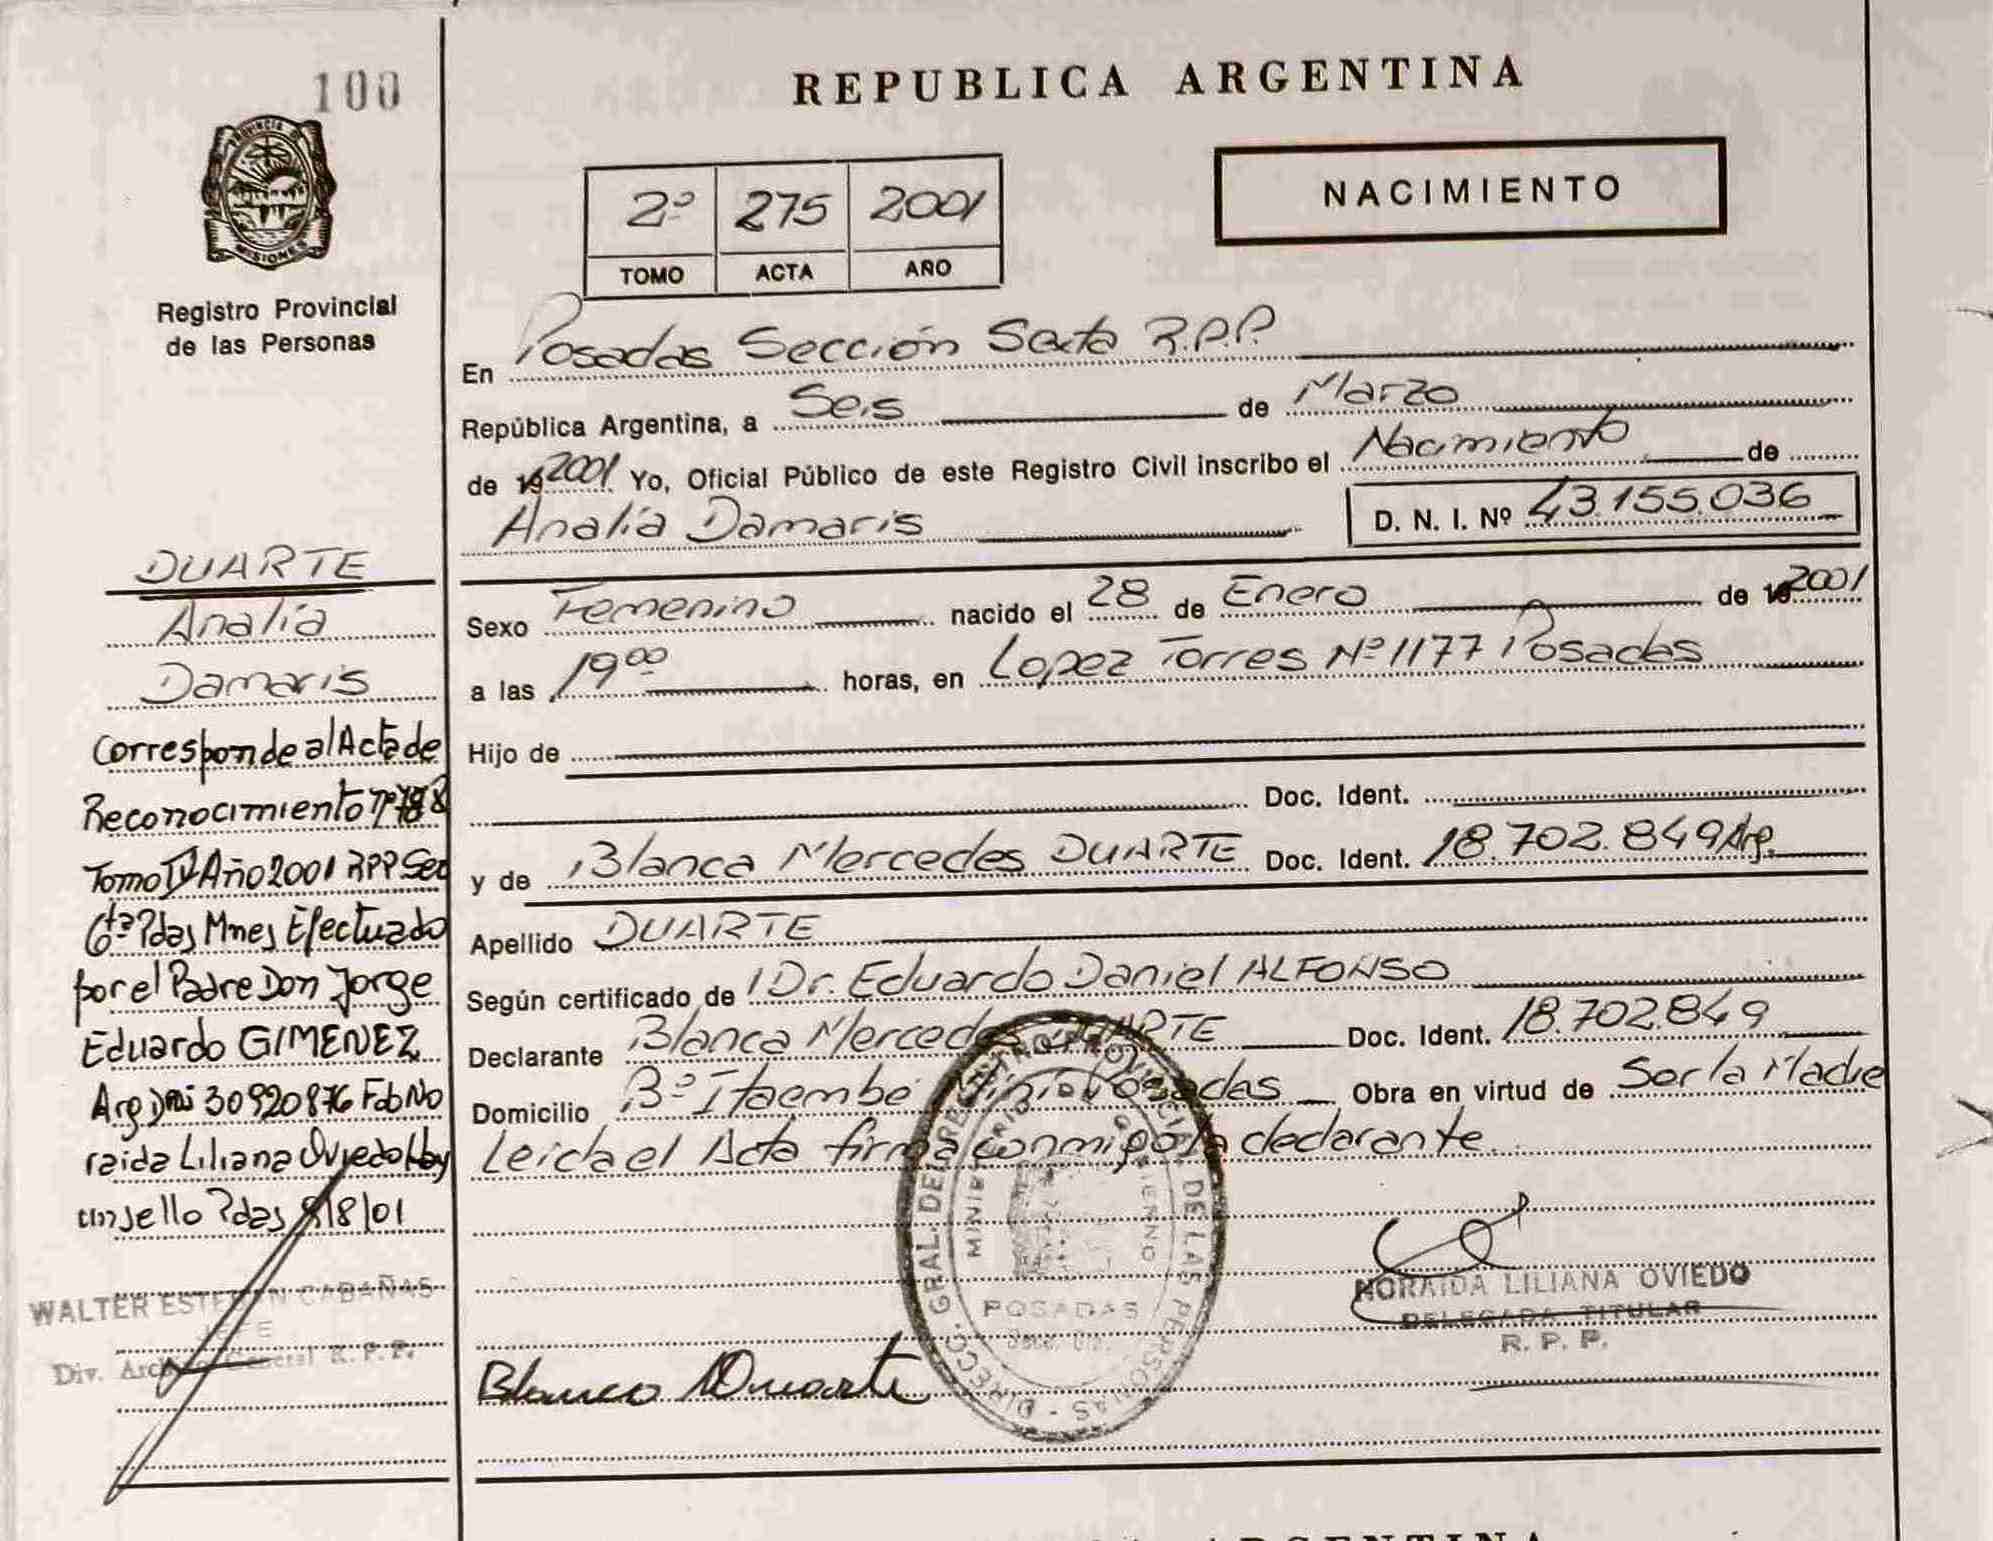 100
PROVINCIA DE
MISIONES
Registro Provincial
de las Personas
DUARTE
Analía
Damaris
Corresponde al Acta de
Reconocimiento Nº
Tomo IV Año 2001 RPP Sec
6ta Pdas Mnes Efectuado
por el Padre Don Jorge
Eduardo GIMENEZ
Arg DNI 30920876 Fdo No
raida Liliana Oviedo Hay
un sello Pdas 8/8/01
WALTER ESTEBAN CABAÑAS
JEFE
Div. Archivo General R. P. P.
REPUBLICA ARGENTINA
NACIMIENTO
2º 275 2001
TOMO ACTA AÑO
En Posadas Sección Sexta R.P.P.
República Argentina, a Seis de Marzo
de 19 2001 Yo, Oficial Público de este Registro Civil inscribo el Nacimiento de
Analía Damaris D. N. I. Nº 43.155.036
Sexo Femenino nacido el 28 de Enero de 19 2001
a las 19 00 horas, en Lopez Torres Nº 1177 Posadas
Hijo de
Doc. Ident.
y de Blanca Mercedes DUARTE Doc. Ident. 18.702.849 Arg.
Apellido DUARTE
Según certificado de Dr. Eduardo Daniel ALFONSO
Declarante Blanca Mercedes DUARTE Doc. Ident. 18.702.849
Domicilio Bº Itaembé Miní Posadas Obra en virtud de Ser la Madre
Leida el Acta firma conmigo la declarante.
DIRECC. GRAL. DEL REGISTRO PROVINCIAL DE LAS PERSONAS
MINISTERIO GOBIERNO
POSADAS
NORAIDA LILIANA OVIEDO
DELEGADA TITULAR
R. P. P.
Blanca Duarte
ARGENTINA